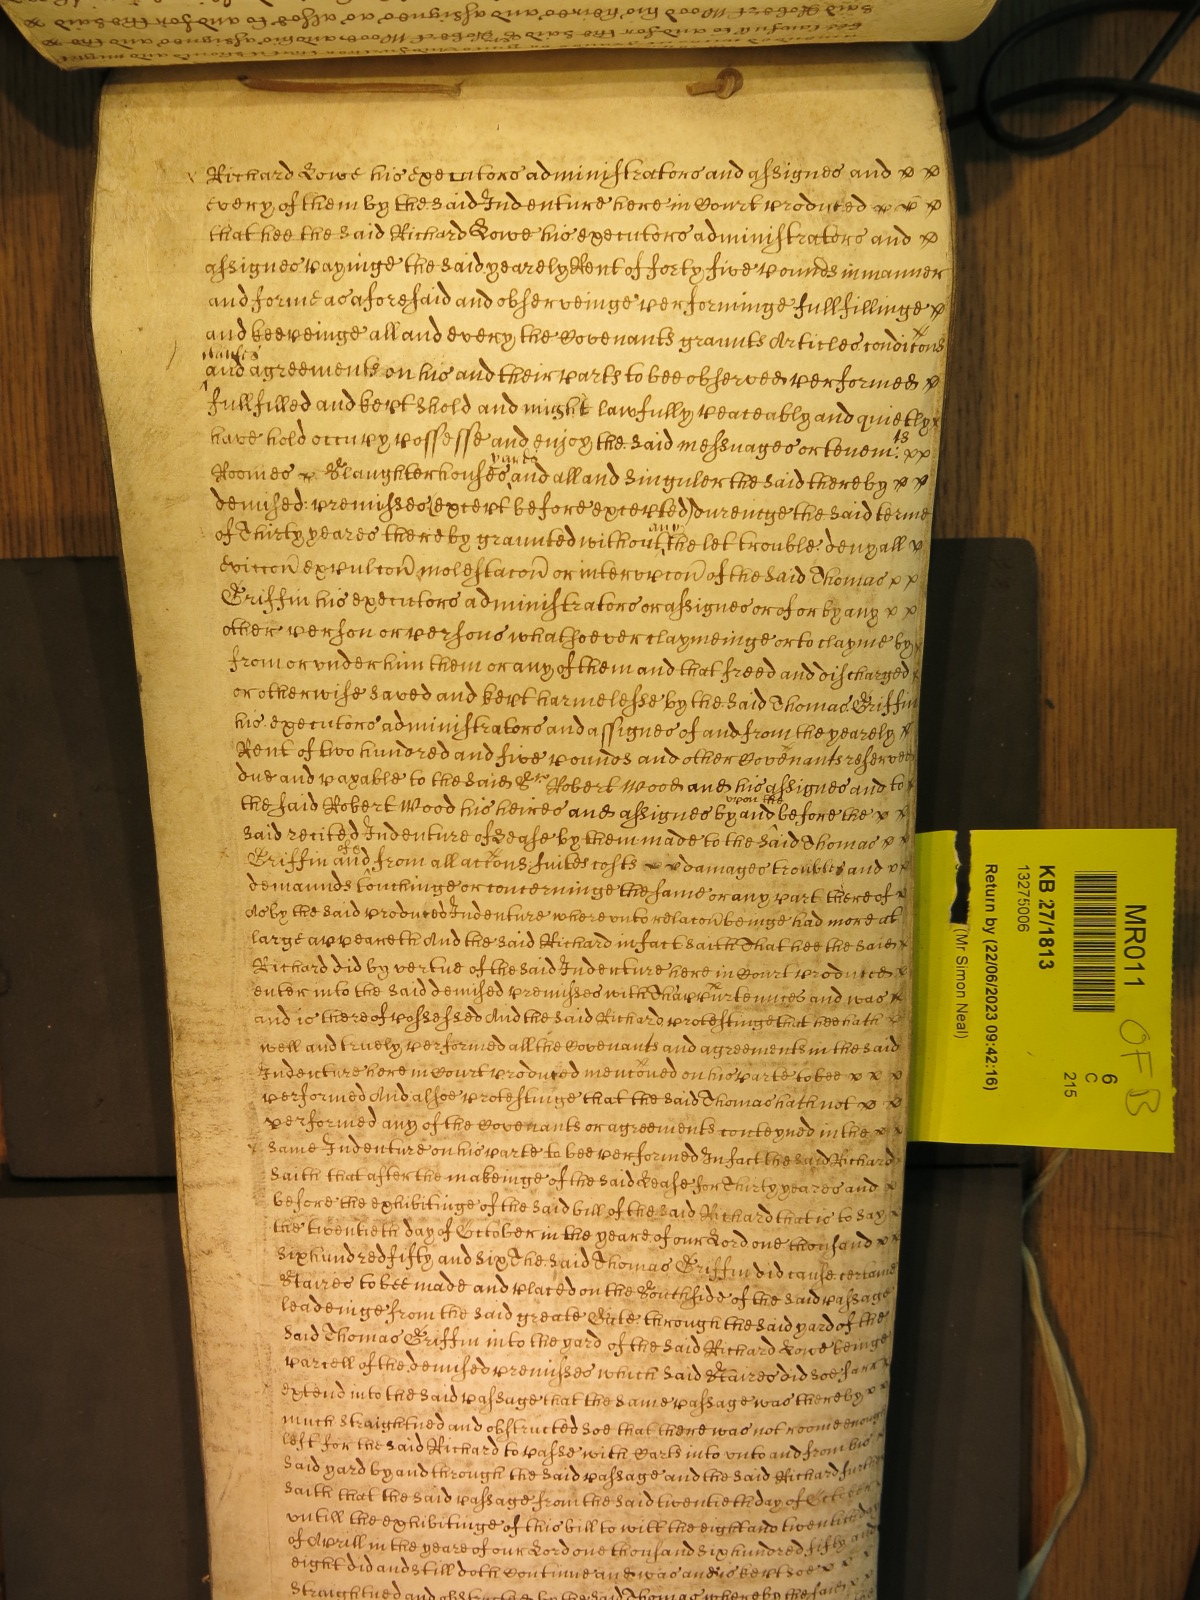 Richard Lowe his executors administrators and assignes and x x
every of them by the said Indenture here in Court produced x x x
that hee the said Richard Lowe his executors administrators and x
assignes payinge the said yearely Rent of forty five pounds in manner
and forme as aforesaid and observeinge performinge fullfillinge x
and keepeinge all and every the Covenants graunts Articles condicons
and agreements on his and their parts to bee observed performed x
fullfilled and kept shold and might lawfully peaceably and quietly x
have hold occupy possesse and enjoy the said messuages or tenemts x x
Roomes x Slaughterhouses yards and all and singuler the said thereby x x
demised premisses (except before excepted) dureinge the said terme
of Thirty yeares thereby graunted without any the let trouble denyall x
eviccon expulcon molestacon or interrupcon of the said Thomas x x
Griffin his executors administrators or assignes or of or by any x x
other person or persons whatsoever claymeinge or to clayme by
from or under him them or any of them and that freed and discharged
or otherwise saved and kept harmelesse by the said Thomas Griffin
his executors administrators and assignes of and from the yearely x
Rent of two hundred and five pounds and other Covenants reserved
due and payable to the said Sr Robert Wood and his assignes and to
the said Robert Wood his heires and assignes by upon the and before the x x
said recited Indenture of Lease by them made to the said Thomas x x
Griffin and of & from all accons suites costs x x damages troubles and x x
demaunds touchinge or concerninge the same or any part thereof x
As by the said produced Indenture whereunto relacon beinge had more at
large appeareth And the said Richard in fact saith That hee the said x
Richard did by vertue of the said Indenture here in Court produced x
enter into the said demised premisses with Thappurtenances and was x
and is thereof possessed And the said Richard protestinge that hee hath x
well and truely performed all the Covenants and agreements in the said
Indenture here in Court produced menconed on his parte to bee x x x
performed And alsoe protestinge that the said Thomas hath not x x
performed any of the Covenants or agreements conteyned in the x x
same Indenture on his parte to bee performed In fact the said Richard
saith that after the makeinge of the said Lease for Thirty yeares and x
before the exhibitinge of the said bill of the said Richard that is to say x
the twentieth day of October in the yeare of our Lord one thousand x x
six hundred fifty and six The said Thomas Griffin did cause certaine
Staires to bee made and placed on the Southside of the said passage
leadeinge from the said greate Gate through the said yard of the
said Thomas Griffin into the yard of the said Richard Lowe beinge
parcell of the demised premisses which said Staires did soe farr x
extend into the said passage that the same passage was thereby x x
much straightned and obstructed soe that there was not roome enough
left for the said Richard to passe with Carts into unto and from his x
said yard by and through the said passage and the said Richard further
saith that the said passage from the said twentieth day of October
untill the exhibitinge of this bill to witt the eight and twentieth day
of Aprill in the yeare of our Lord one thousand six hundred fifty and
eight did and still doth continue and was and is kept soe x x x
straightned and obstructed by the said Thomas whereby the said x x
MR011
6
C
215
KB 27/1813
13275006
Return by (22/06/2023 09:42:16)
(Mr Simon Neal)
OFB